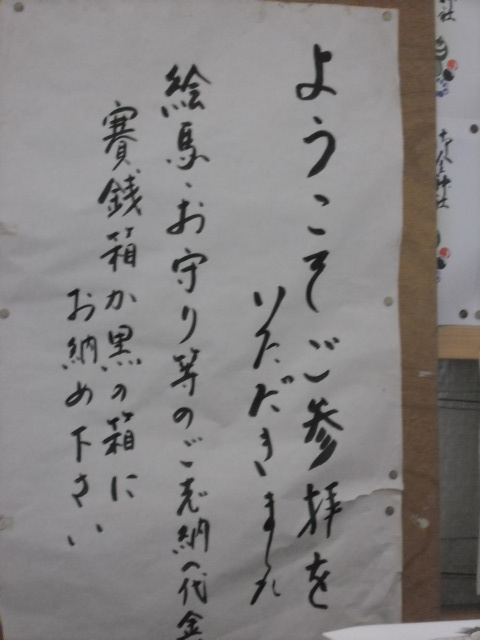 ようこそご参拝を
いただきました
絵馬、お守り等のご志納の代金
賽銭箱か黒の箱に
お納め下さい